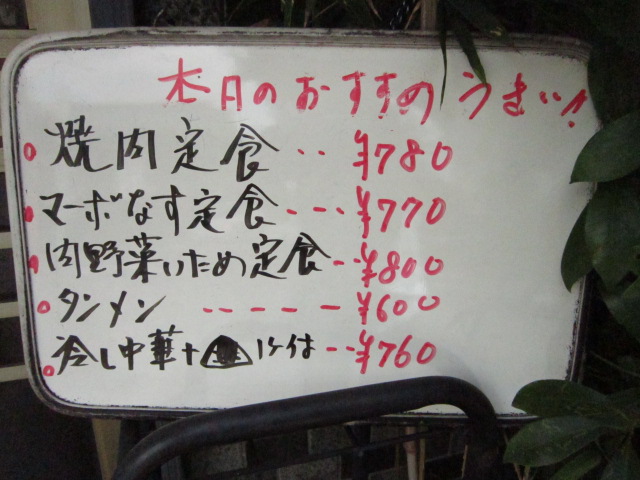 本日のおすすめ うまい!
焼肉定食 ‥ ¥780
マーボなす定食 --- ¥770
肉野菜いため定食 -- ¥800
タンメン ----- ¥600
冷し中華+ -- ¥760